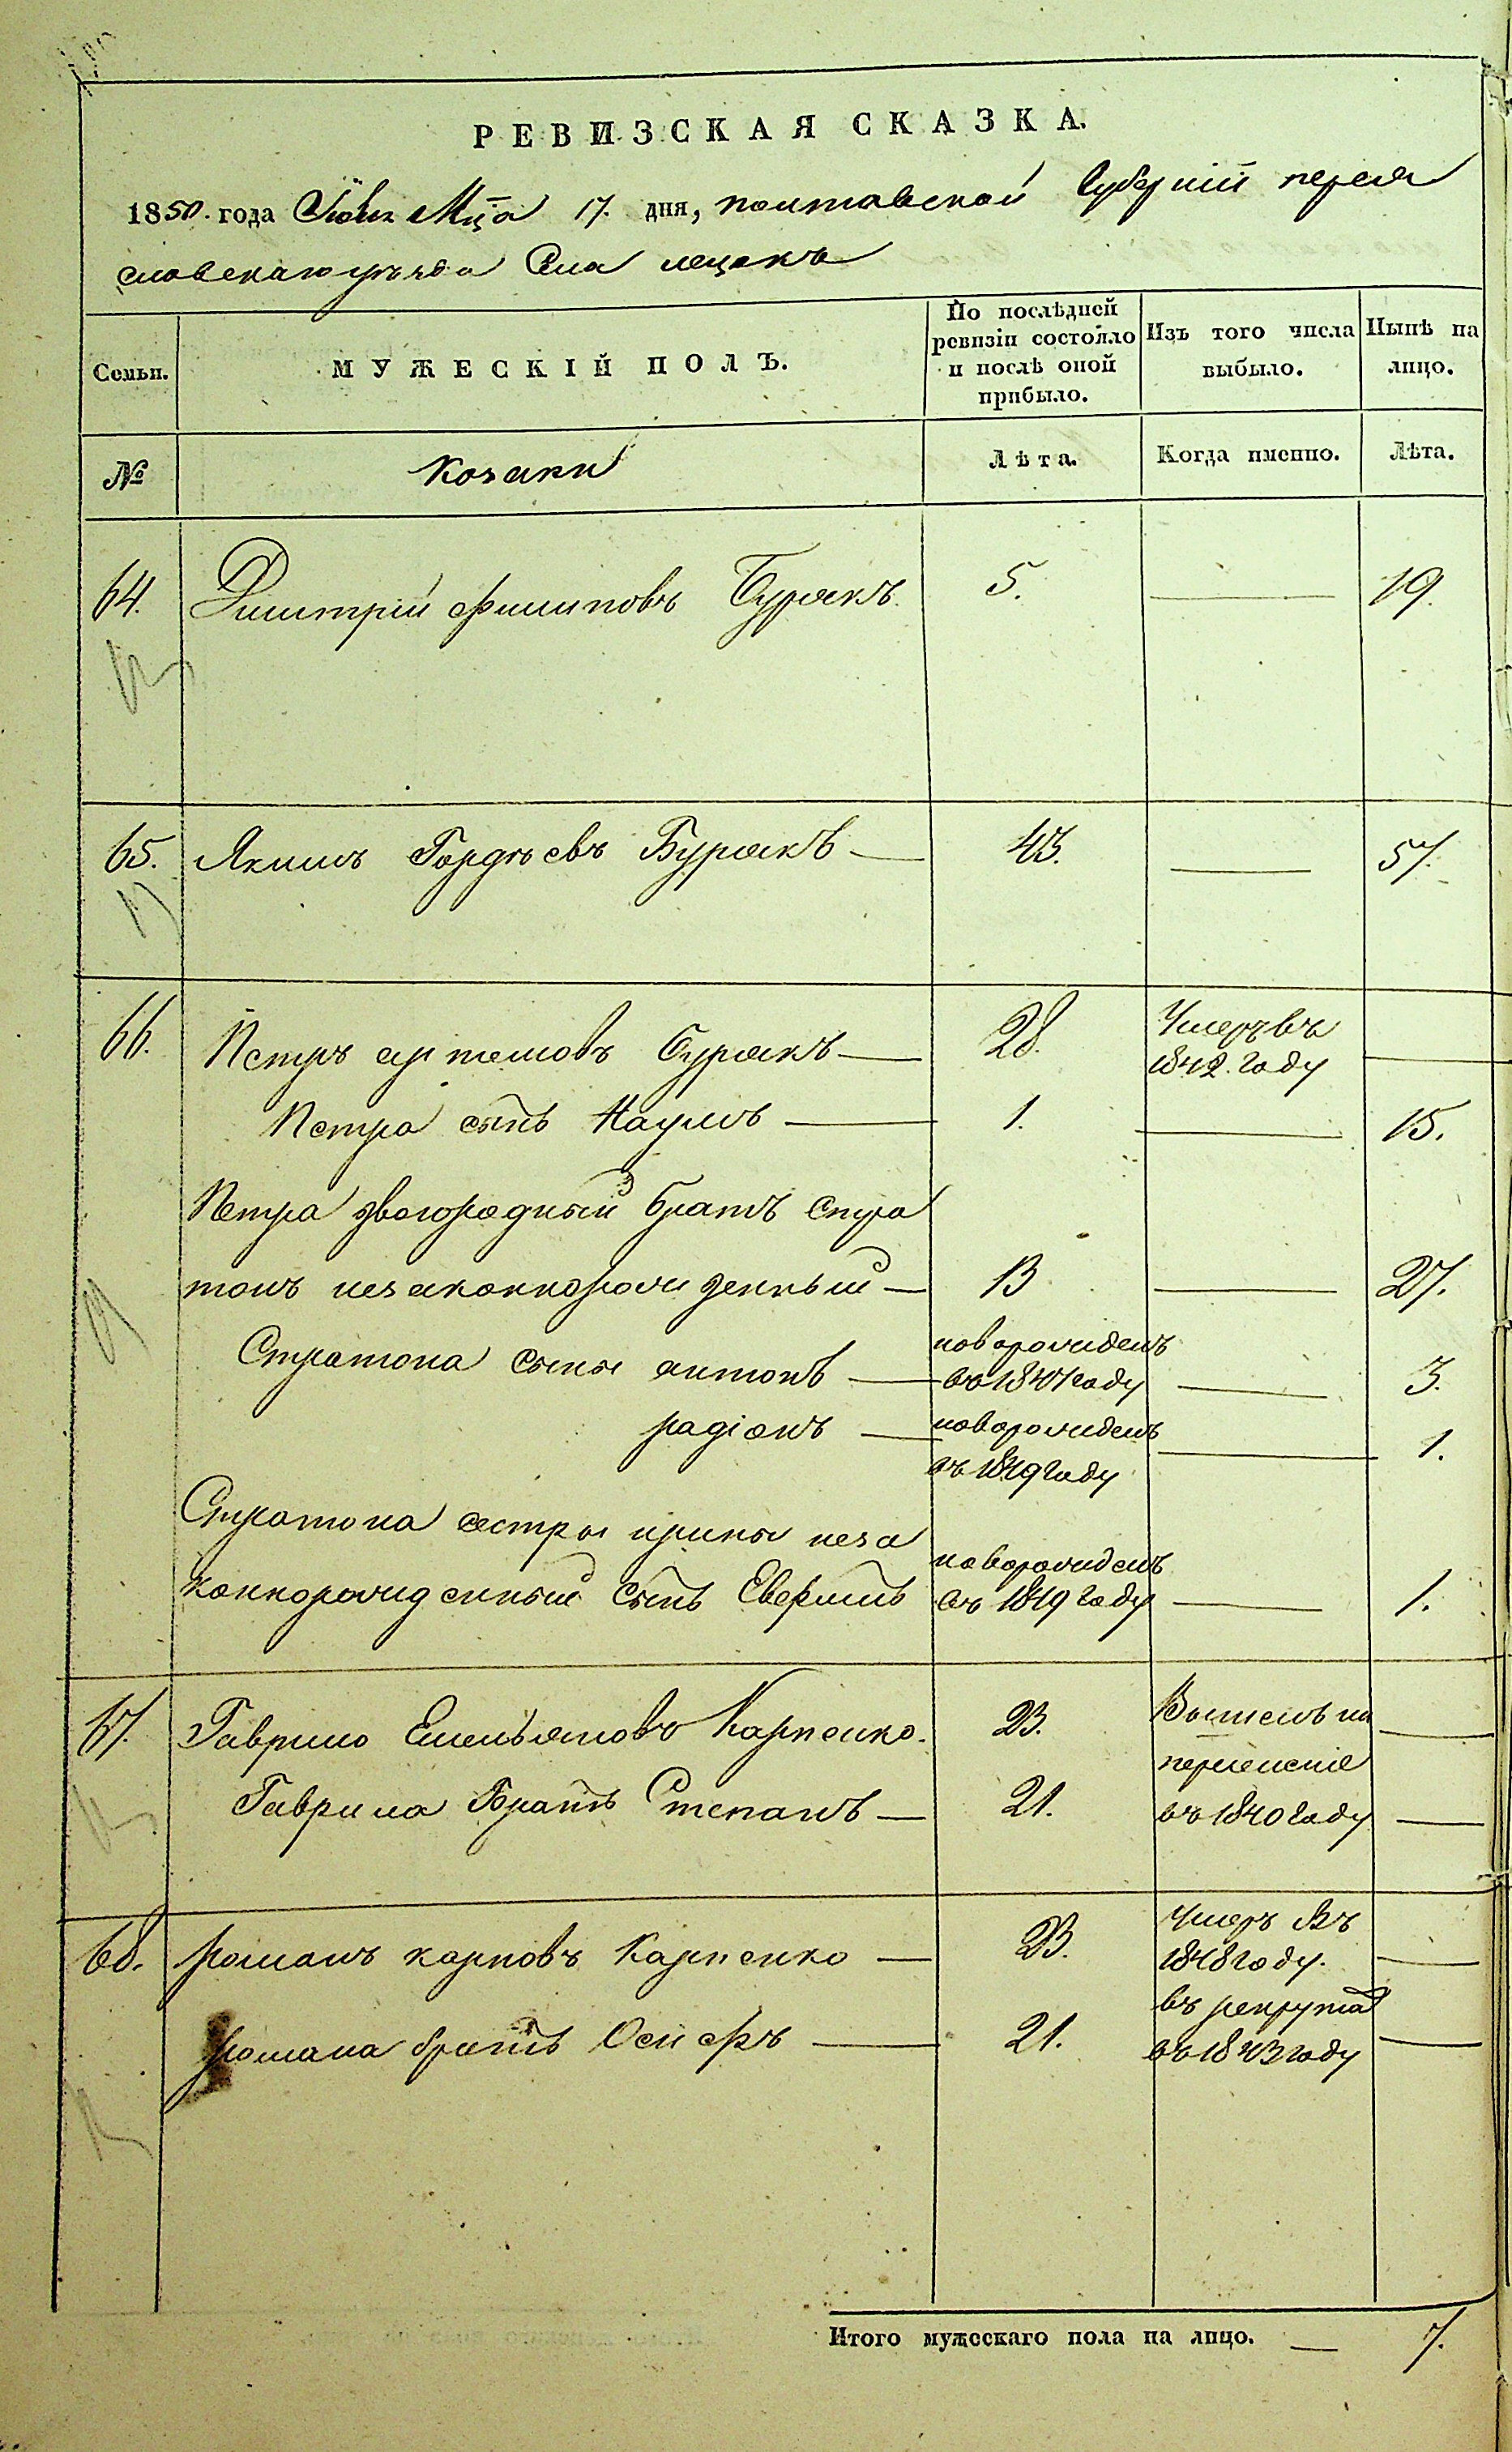 РЕВИЗСКАЯ СКАЗКА.
1850. года Июн Мца 17. дня, полтавской Губерніи перея
славскаго уѣзда Села лецокъ
Семьи. МУЖЕСКІЙ ПОЛЪ. По послѣдней ревизіи состояло и послѣ оной прибыло. Изъ того числа выбыло. Нынѣ на лицо.
№ козаки Лѣта. Когда именно. Лѣта.
64. Дмитрій Филиповъ Бурякъ 5. — 19.
65. Якимъ Гордѣевъ Бурякъ — 43. — 57.
66. Петръ артемовъ бурякъ — 28. Умеръ въ 1842. году —
Петра сынъ Наумъ — 1. — 15.
Петра двоюродный братъ стра
тонъ незаконнорожденный — 13 — 27.
Стратона сыны антонъ — новорожденъ въ 1847 году — 3.
радіонъ — новорожденъ въ 1849 году — 1.
Стратона сестры ирины неза
коннорожденный сынъ новорожденъ въ 1849 году — 1.
67. Гаврило Емельяновъ Карпенко. 23. Вышелъ на переселеніе —
Гаврила Братъ Степанъ — 21. въ 1840 году —
68. романъ карповъ Карпенко — 23. умеръ въ 1848 году. —
романа братъ Осифъ — 21. въ рекрута въ 1843 году —
Итого мужескаго пола на лицо. — 7.